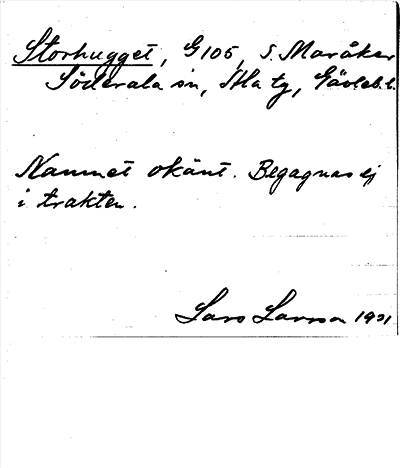 Storhugget, G105, S. Maråker
Söderala sn, Ala tg, Gävleb. l.
Namnet okänt. Begagnas ej
i trakten.
Lars Larsson 1931